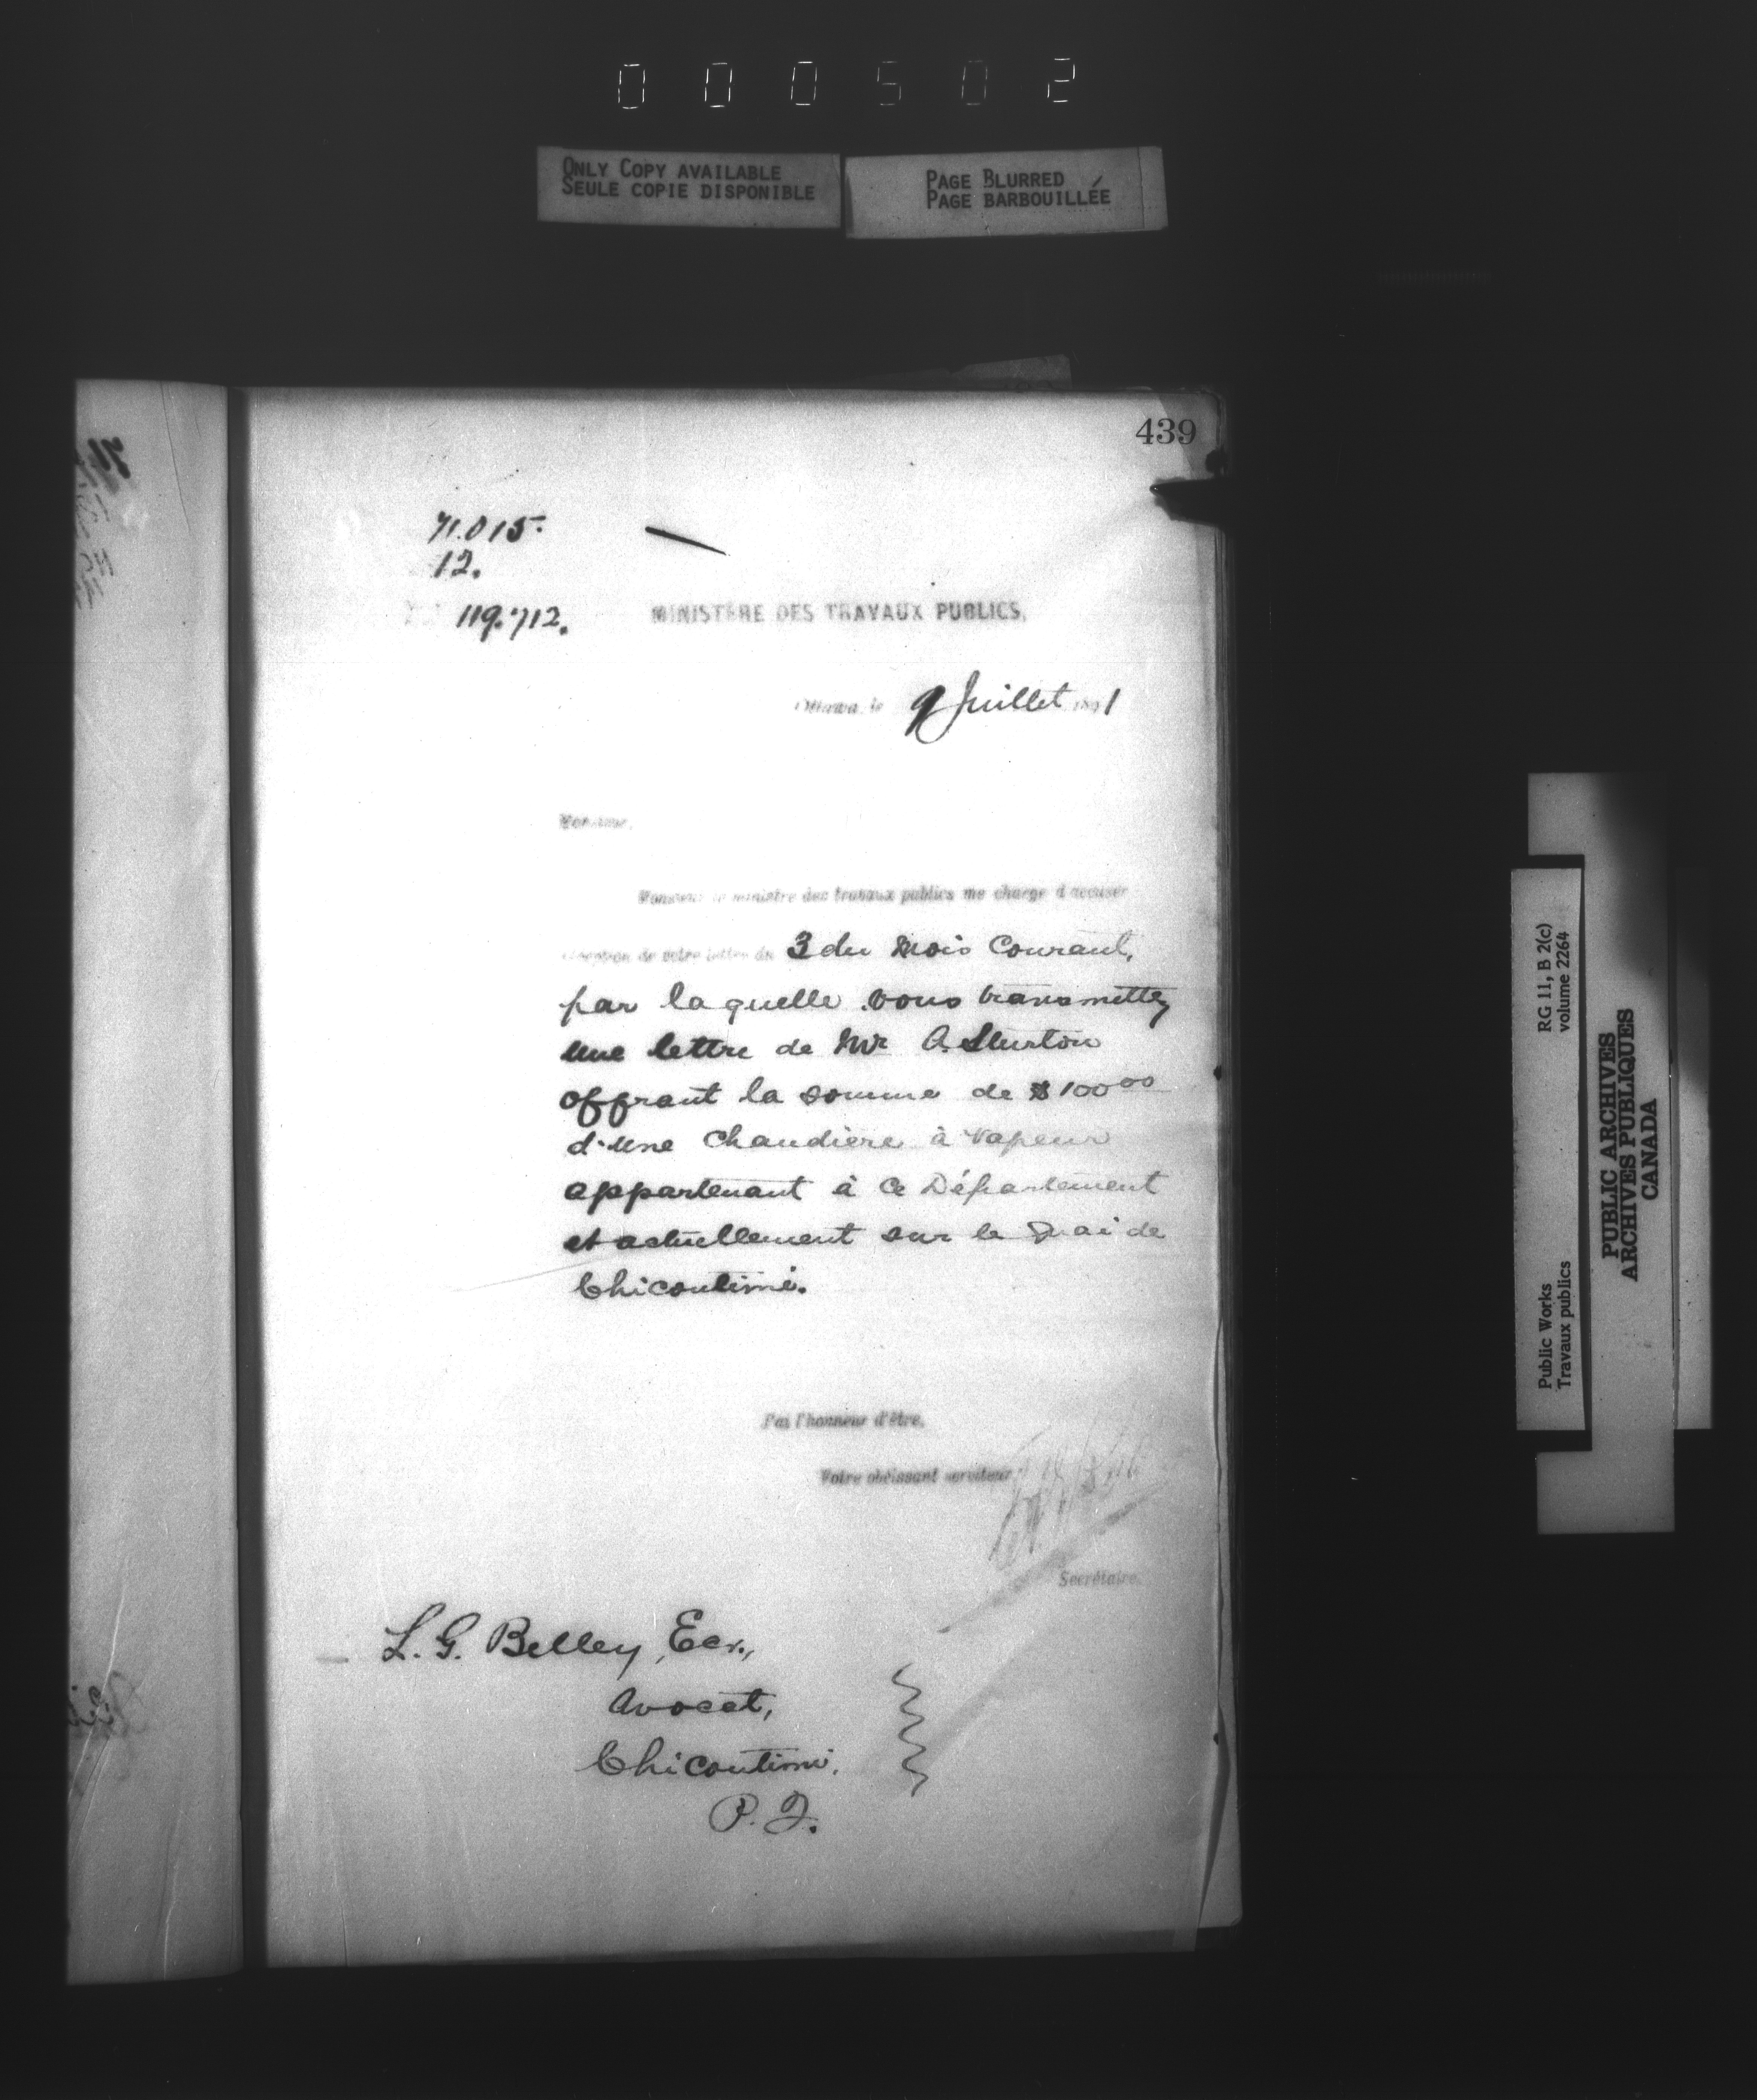 000502
ONLY COPY AVAILABLE
SEULE COPIE DISPONIBLE
PAGE BLURRED
PAGE BARBOUILLÉE
439
71.015.
12.
119.712.
MINISTÈRE DES TRAVAUX PUBLICS,
Ottawa, le 9 Juillet 1891
Monsieur,
Monsieur le ministre des travaux publics me charge d'accuser
réception de votre lettre du 3 du Mois Courant,
par laquelle vous transmettez
une lettre de Mr A.
offrant la somme de $100 00
d'une Chaudière à Vapeur
appartenant à Ce Département
et actuellement sur le Quai de
Chicoutimi.
J'ai l'honneur d'être,
Votre obéissant serviteur,
Secrétaire.
L. G. Belley, Ecr.,
Avocat,
Chicoutimi,
P. Q.
Public Works
Travaux publics
RG 11, B 2(c)
volume 2264
PUBLIC ARCHIVES
ARCHIVES PUBLIQUES
CANADA